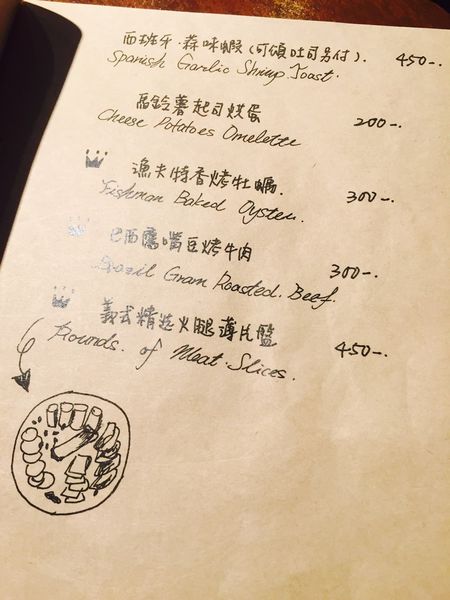 西班牙.蒜味蝦(可頌吐司另付). 450-.
Spanish Garlic Shrimp Toast.
馬鈴薯起司烘蛋 200-.
Cheese Potatoes Omelette
漁夫特香烤牡蠣. 300-.
Fishman Baked Oyster.
巴西鷹嘴豆烤牛肉 300-.
Brazil Gram Roasted. Beef.
義式精選火腿薄片盤 450-.
Rounds. of Meat. Slices.